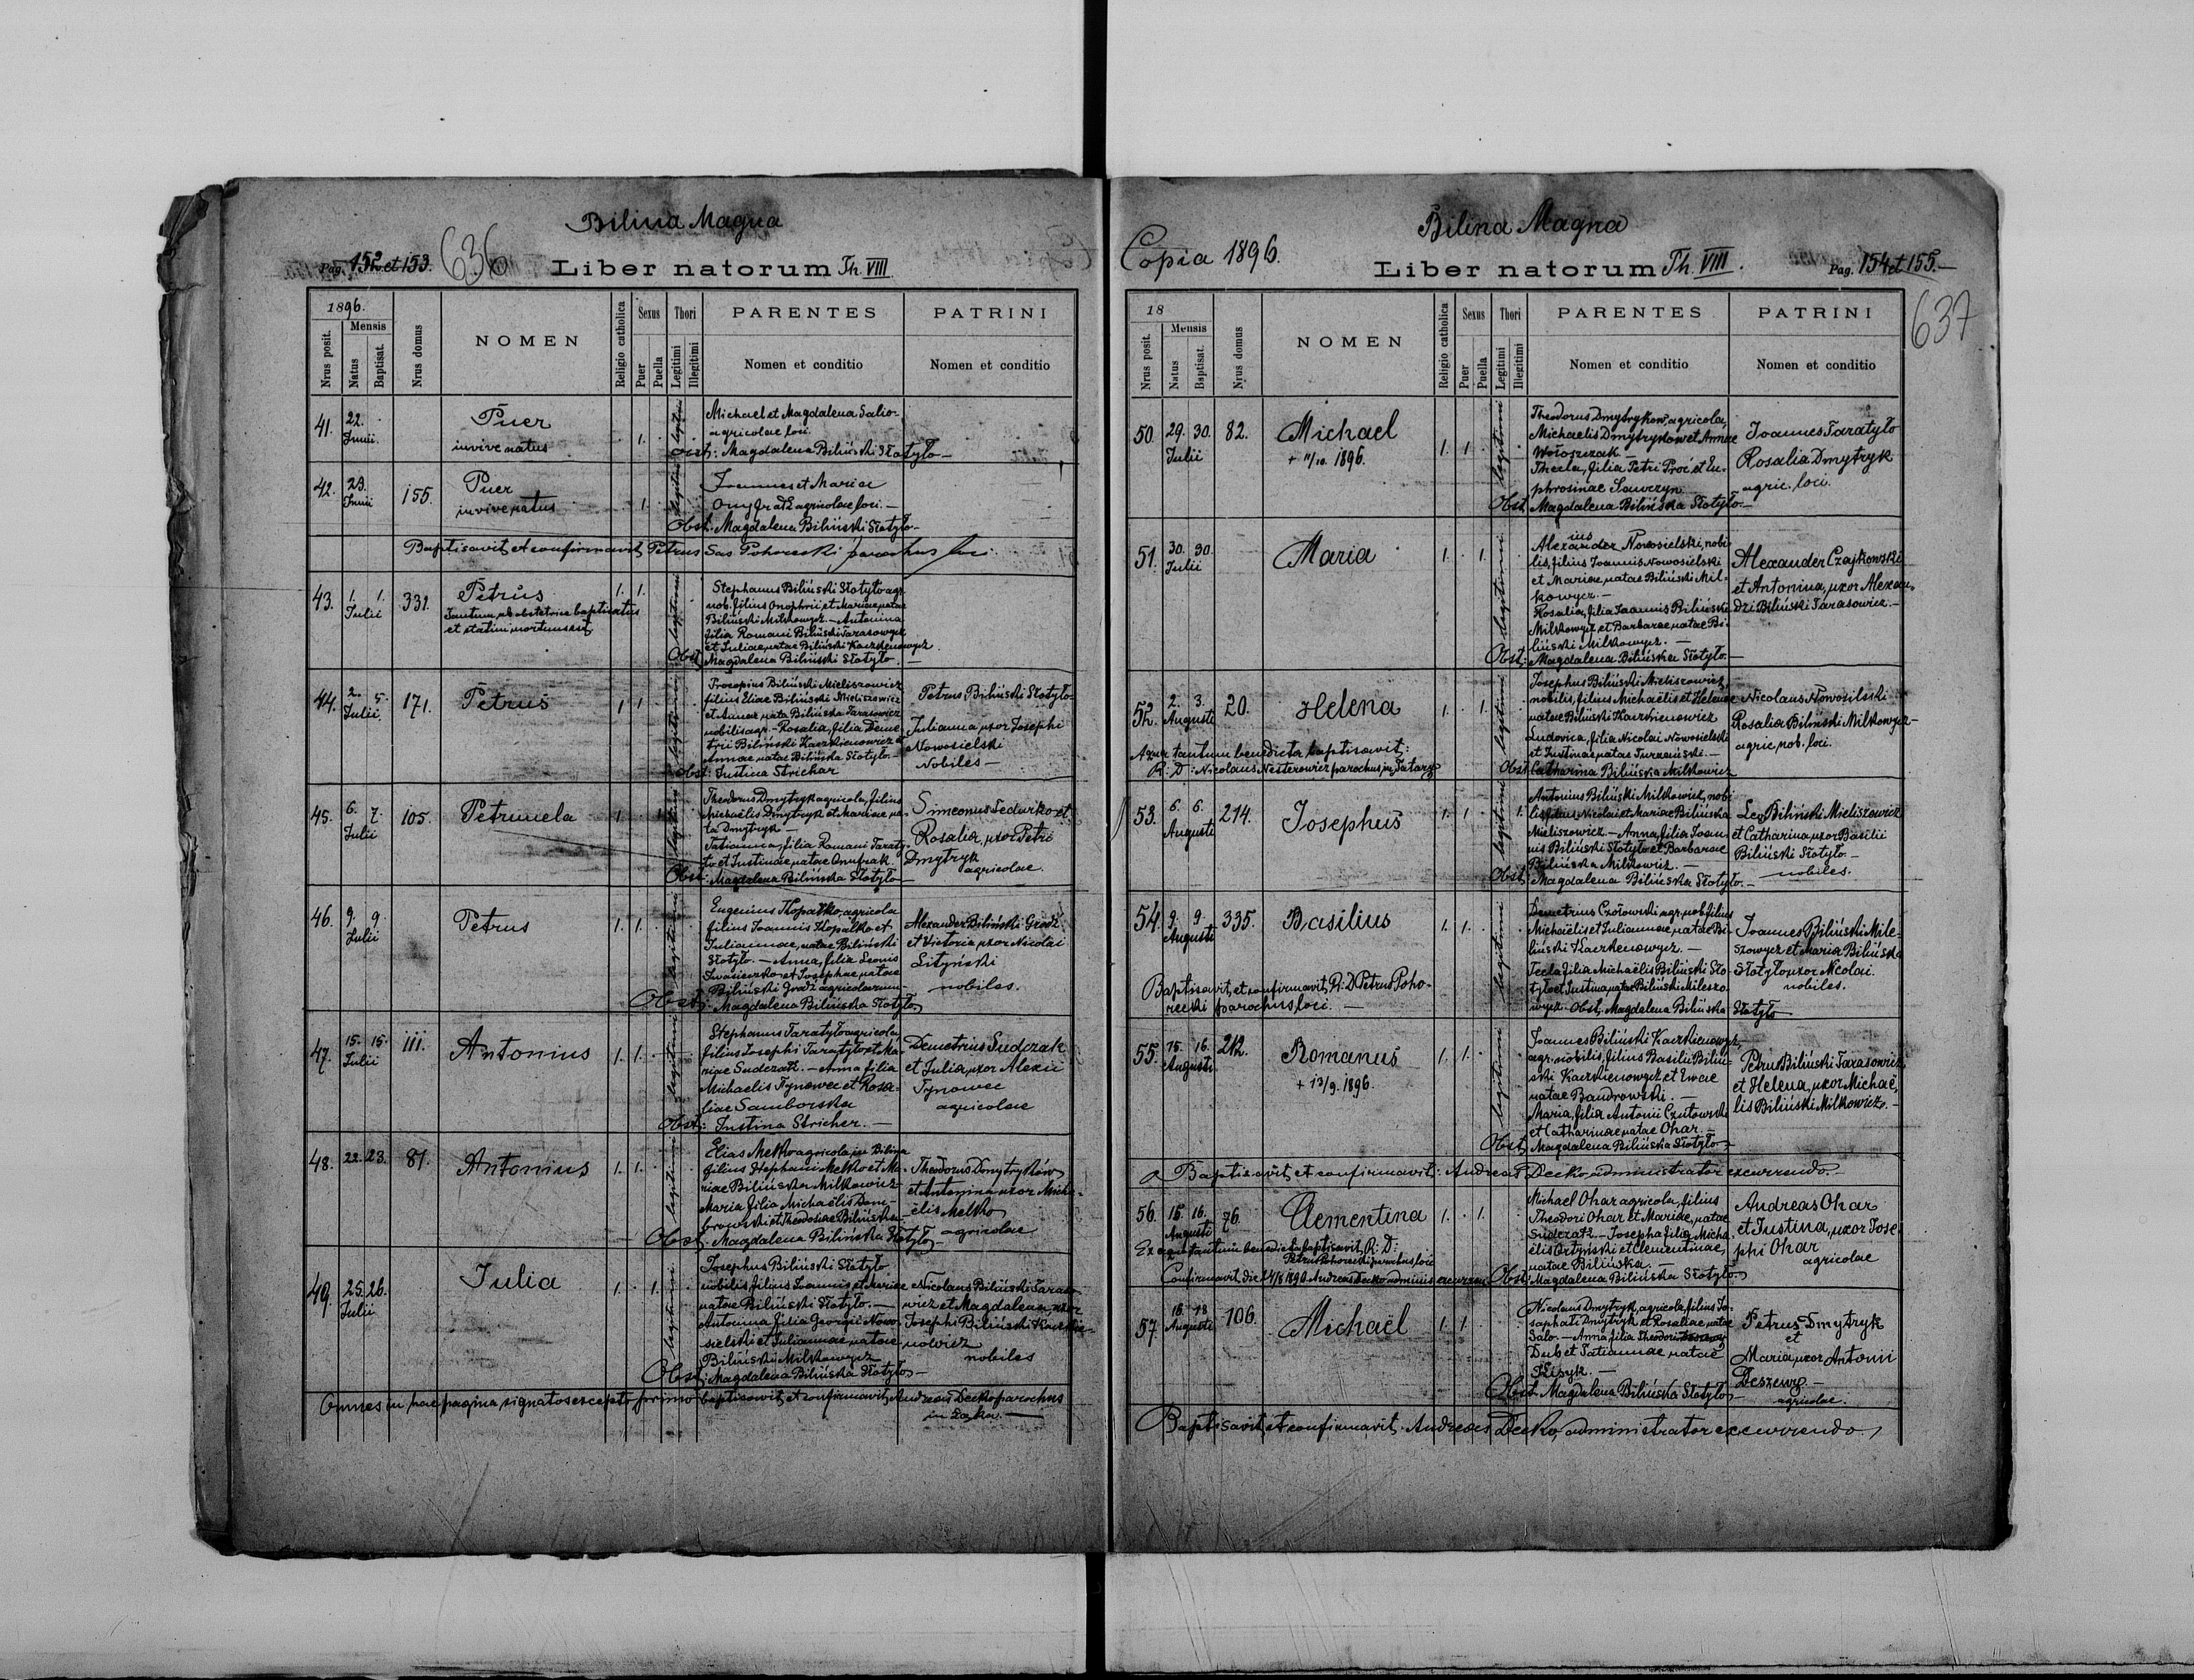 Bilina Magna
Pag. 152 et 153. 636
Liber natorum Th. VIII
1896.
Nrus posit.
Mensis
Natus
Baptisat.
Nrus domus
NOMEN
Religio catholica
Sexus
Puer
Puella
Thori
Legitimi
Illegitimi
PARENTES
Nomen et conditio
PATRINI
Nomen et conditio
41. 22. Junii
Puer
invive natus
1.
legitimi
Michael et Magdalena Salio-
agricolae loci.
Obst: Magdalena Biliński Słotyło-
42. 23. Junii 155.
Puer
invive natus
1.
legitimi
Joannes et Maria
agricolae loci.-
Obst: Magdalena Biliński Słotyło-
Baptisavit et confirmavit Petrus Sas Pohorecki parochus loci
43. 1. 1. Julii 331.
Petrus
Tantum ab obstetrice baptisatus
et statim mortuus est
1. 1.
legitimi
Stephanus Biliński Słotyło agr.
nob. filius Onophrii et Mariae, natae
Biliński Milkowycz.- Antonina
filia Romani Biliński Tarasowycz
et Juliae, natae Biliński
Obst Magdalena Biliński Słotyło.-
44. 2. 5. Julii 171.
Petrus
1 1
legitimi
Procopius Biliński Mieliszowicz
filius Eliae Biliński Mieliszowicz
et Annae, nata Bilińska Tarasowicz
nobilis agr.- Rosalia, filia Deme-
trii Biliński Kaczkienowicz et
Annae, natae Bilińska Słotyło.-
Obst: Justina Strichar
Petrus Biliński Słotyło-
Julianna, uxor Josephi
Nowosielski
Nobiles-
45. 6. 7. Julii 105.
Petrunela
1.
legitimi
Theodorus Dmytryk agricola, filius
Michaelis Dmytryk et Mariae na-
ta Dmytryk-
Tatianna, filia Romani Taraty-
ło et Justinae, natae Onufrak.
Obst: Magdalena Bilińska Słotyło-
Simeonus Fedurko et
Rosalia, uxor Petri
Dmytryk
agricolae.
46. 9. 9. Julii
Petrus
1. 1.
legitimi
Eugenius Kopałko, agricola
filius Joannis Kopałko et
Juliannae, natae Biliński
Słotyło.- Anna, filia Leonis
et Josephae natae
Biliński Grodź agricolarum-
Obst: Magdalena Bilińska Słotyło
Alexander Biliński Grodź
et Victoria, uxor Nicolai
Lityński
nobiles.
47. 15. 15. Julii 111.
Antonius
1. 1.
legitimi
Stephanus Taratyło agricola,
filius Josephi Taratyło et Ma-
riae Sudczak.- Anna filia
Michaelis Tynowec et Rosa-
liae Samborska
Obst: Justina Stricher.-
Demetrius Sudczak
et Julia, uxor Alexii
Tynowec
agricolae
48. 22. 23. 81.
Antonius
1. 1.
legitimi
Elias Melko agricola, in Bilina
filius Stephani Melko et Ma-
riae Bilińska Milkowicz-
Maria, filia Michaëlis Dom-
browski et Theodosiae Bilińska-
Obst. Magdalena Bilińska Słotyło-
Theodorus Dmytryków
et Antonina uxor Micha-
ëlis Melko
agricolae
49. 25. 26. Julii
Julia
1. 1.
legitimi
Josephus Biliński Słotyło
nobilis filius Joannis et Mariae
natae Biliński Słotyło.-
Antonina filia Georgii Nowo-
sielski et Juliannae natae-
Biliński Milkowycz
Obst: Magdalena Bilińska Słotyło-
Nicolaus Biliński Taraso-
wicz et Magdalena, uxor
Josephi Biliński Kaczkie-
nowicz
nobiles
Omnes in hac pagina signatos excepto primo baptisavit et confirmavit Andreas Decko parochus
in Łąka.-
Copia 1896.
Bilina Magna
Liber natorum Th. VIII. Pag. 154 et 155.-
637
18
Nrus posit.
Mensis
Natus
Baptisat.
Nrus domus
NOMEN
Religio catholica
Sexus
Puer
Puella
Thori
Legitimi
Illegitimi
PARENTES
Nomen et conditio
PATRINI
Nomen et conditio
50. 29. 30. Julii 82.
Michael
+ 11/10. 1896.
1. 1.
legitimi
Theodorus Dmytrykow, agricola,
Michaelis Dmytrykow et Annae
Wołoszczak.-
Thecla, filia Petri Proć et Eu-
phrosinae Sawczyn
Obst Magdalena Bilińska Słotyło-
Joannes Taratyło
Rosalia Dmytryk
agric. loci.
51. 30. 30. Julii
Maria
1. 1.
legitimi
Alexander Nowosielski, nobi-
lis, filius Joannis Nowosielski
et Mariae, natae Biliński Mil-
kowycz.-
Rosalia, filia Joannis Biliński
Milkowycz et Barbarae natae Bi-
liński Milkowycz.-
Obst: Magdalena Bilińska Słotyło.-
Alexander Czajkowski
et Antonina, uxor Alexan-
dri Biliński Tarasowicz.-
52. 2. 3. Augusti 20.
Helena
1. 1.
legitimi
Josephus Biliński Mieliszowicz
nobilis, filius Michaëlis et Helenae
natae Biliński Kaczkienowicz
Ludovica, filia Nicolai Nowosielski
et Justinae, natae Turzański.-
Obst Catharina Bilińska Milkowicz
Nicolaus Nowosilski
Rosalia Biliński Milkowycz-
agric. nob. loci.
Aqua tantum benedicta baptisavit:
R. D: Nicolaus Nesterowicz parochus in Tatary
53. 6. 6. Augusti 214.
Josephus
1. 1. 1.
legitimi
Antonius Biliński Milkowicz, nobi-
lis, filius Nicolai et Mariae Bilińska
Mieliszowicz.- Anna, filia Joan-
nis Biliński Słotyło et Barbarae
Bilińska Milkowicz.-
Obst Magdalena Bilińska Słotyło.-
Leo Biliński Mieliszowicz
et Catharina, uxor Basilii
Biliński Słotyło-
nobiles.
54. 9. 9. Augusti 335.
Basilius
1. 1.
legitimi
Demetrius Czołowski agr. nob. filius
Michaëlis et Juliannae, natae Bi-
liński Kaczkenowycz.-
Tecla, filia Michaëlis Biliński Sło-
tyło et Justina, natae Biliński Mileszo-
wycz- Obst. Magdalena Bilińska Słotyło
Joannes Biliński Mile-
szowycz et Maria Bilińska
Słotyło, uxor Nicolai.
nobiles.
Baptisavit, et confirmavit, R: D Petrus Poho-
recki parochus loci.-
55. 15. 16. Augusti 212.
Romanus
+ 13/9. 1896.
1. 1.
legitimi
Joannes Biliński Kaczkienowycz,
agr. nobilis, filius Basilii Biliń-
ski Kaczkienowycz et Ewae
natae Bandrowski.-
Maria, filia Antonii
et Catharinae natae Ohar.-
Obst. Magdalena Bilińska Słotyło-
Petrus Biliński Tarasowicz
et Helena, uxor Michaë-
lis Biliński Milkowicz.-
Baptisavit et confirmavit: Andreas Decko, administrator excurrendo.-
56. 15. 16. Augusti 76.
Clementina
1. 1.
Michael Ohar agricola, filius
Theodori Ohar et Mariae, natae
Sudczak.- Josepha filia Micha-
ëlis Ortyński et Clementinae,
natae Bilińska.-
Obst. Magdalena Bilińska Słotyło-
Andreas Ohar
et Justina, uxor Jose-
phi Ohar
agricolae
Ex aqua tantum benedicta baptisavit, R: D:
Petrus Pohorecki parochus loci
Confirmavit die Andreas Decko
57. 18 18 Augusti 106.
Michaël
1. 1.
Nicolaus Dmytryk, agricola, filius Jo-
saphati Dmytryk et Rosaliae natae
Salo.- Anna filia Theodori
Dub et Tatiannae natae
Obst Magdalena Bilińska Słotyło-
Petrus Dmytryk
et
Maria, uxor Antonii
Deszewy-
agricolae.
Baptisavit, et confirmavit. Andreas Decko, administrator excurrendo.